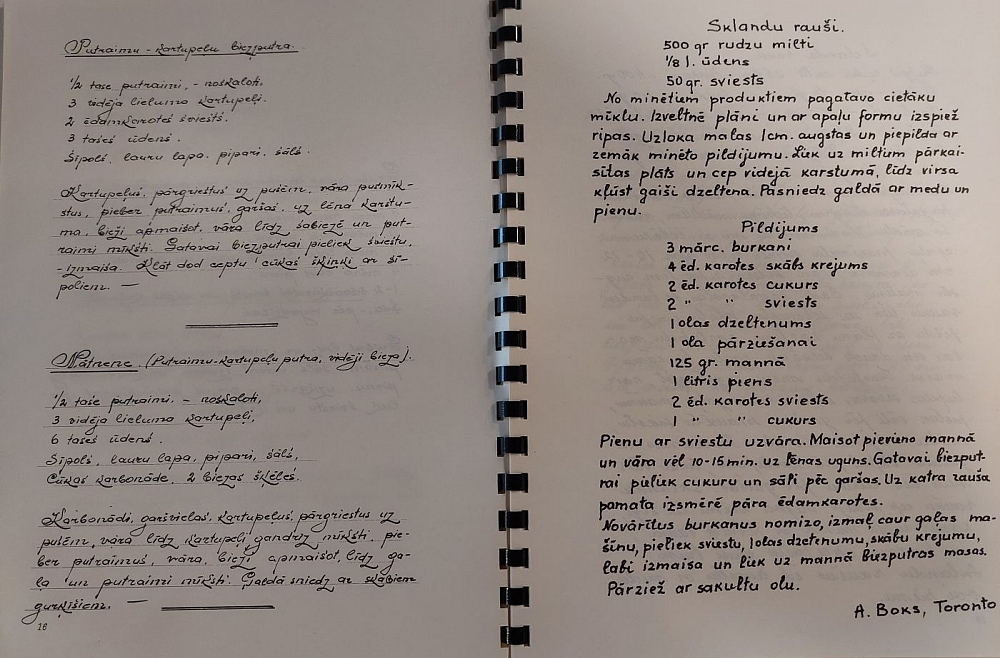 Putraimu - kartupeļu biezputra.
1/2 tase putraimi, - noskaloti,
3 vidēja lieluma kartupeļi.
2 ēdamkarotes sviests.
3 tases ūdens.
Sīpols, lauru lapa, pipari, sāls.
Kartupeļus, pārgriestus uz pusēm, vāra pusmīk-
stus, pieber putraimus, garšas, uz lēna karstu-
ma, bieži apmaisot, vāra līdz sabiezē un put-
raimi mīksti. Gatavai biezputrai pieliek sviestu,
- izmaisa. Klāt dod ceptu cūkas šķiņķi ar sī-
poliem. —
Nātnene. (Putraimu-kartupeļu putra, vidēji bieza).
1/2 tase putraimi, - noskaloti,
3 vidēja lieluma kartupeļi,
6 tases ūdens.
Sīpols, lauru lapa, pipari, sāls,
Cūkas karbonāde, 2 biezas šķēles.
Karbonādi, garšvielas, kartupeļus, pārgriestus uz
pusēm, vāra līdz kartupeļi gandrīz mīksti, pie-
ber putraimus, vāra, bieži apmaisot, līdz ga-
ļa un putraimi mīksti. Galdā sniedz ar skābiem
gurķīšiem. —
16
Sklandu rauši.
500 gr rudzu milti
1/8 l. ūdens
50 gr. sviests
No minētiem produktiem pagatavo cietāku
mīklu. Izveltnē plāni un ar apaļu formu izspiež
ripas. Uzloka malas 1cm. augstas un piepilda ar
zemāk minēto pildījumu. Liek uz miltiem pārkai-
sītas plāts un cep vidējā karstumā, līdz virsa
kļūst gaiši dzeltena. Pasniedz galdā ar medu un
pienu.
Pildījums
3 mārc. burkani
4 ēd. karotes skābs krejums
2 ēd. karotes cukurs
2 " " sviests
1 olas dzeltenums
1 ola pārziešanai
125 gr. mannā
1 litris piens
2 ēd. karotes sviests
1 " " cukurs
Pienu ar sviestu uzvāra. Maisot pievieno mannā
un vāra vēl 10-15 min. uz lēnas uguns. Gatavai biezput-
rai pieliek cukuru un sāli pēc garšas. Uz katra rauša
pamata izsmērē pāra ēdamkarotes.
Novārītus burkanus nomizo, izmaļ caur gaļas ma-
šīnu, pieliek sviestu, 1 olas dzeltenumu, skābu krejumu,
labi izmaisa un liek uz mannā biezputras masas.
Pārziež ar sakultu olu.
A. Boks, Toronto